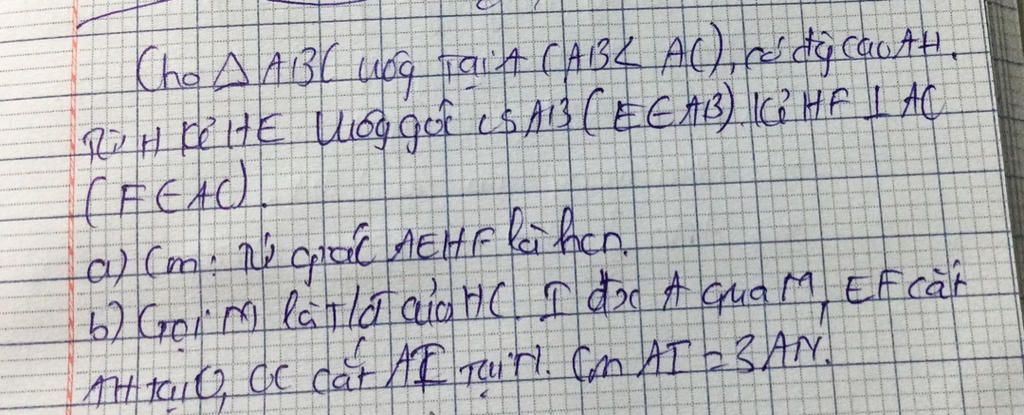 Cho Δ ABC uôg Tại A (AB < AC), có đg cao AH.
Từ H kẻ HE uôg góc cs AB (E ∈ AB). Kẻ HF ⊥ AC
(F ∈ AC).
a) Cm: Tứ giác AEHF là hcn.
b) Gọi M là Tđ của HC. I đx A qua M, EF cắt
AH tại O, OC cắt AI Tại N. Cm AI = 3AN.